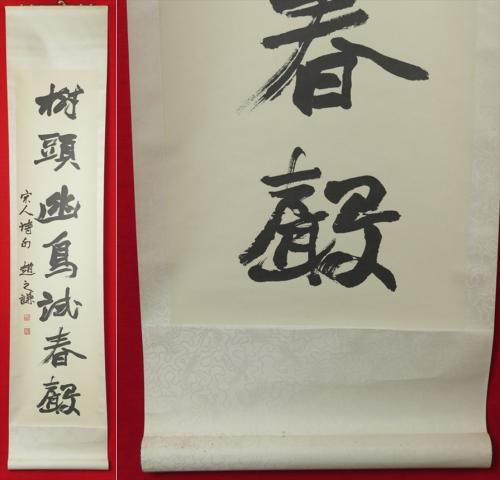 樹頭幽鳥試春聲
宋人詩句 趙之謙
春聲